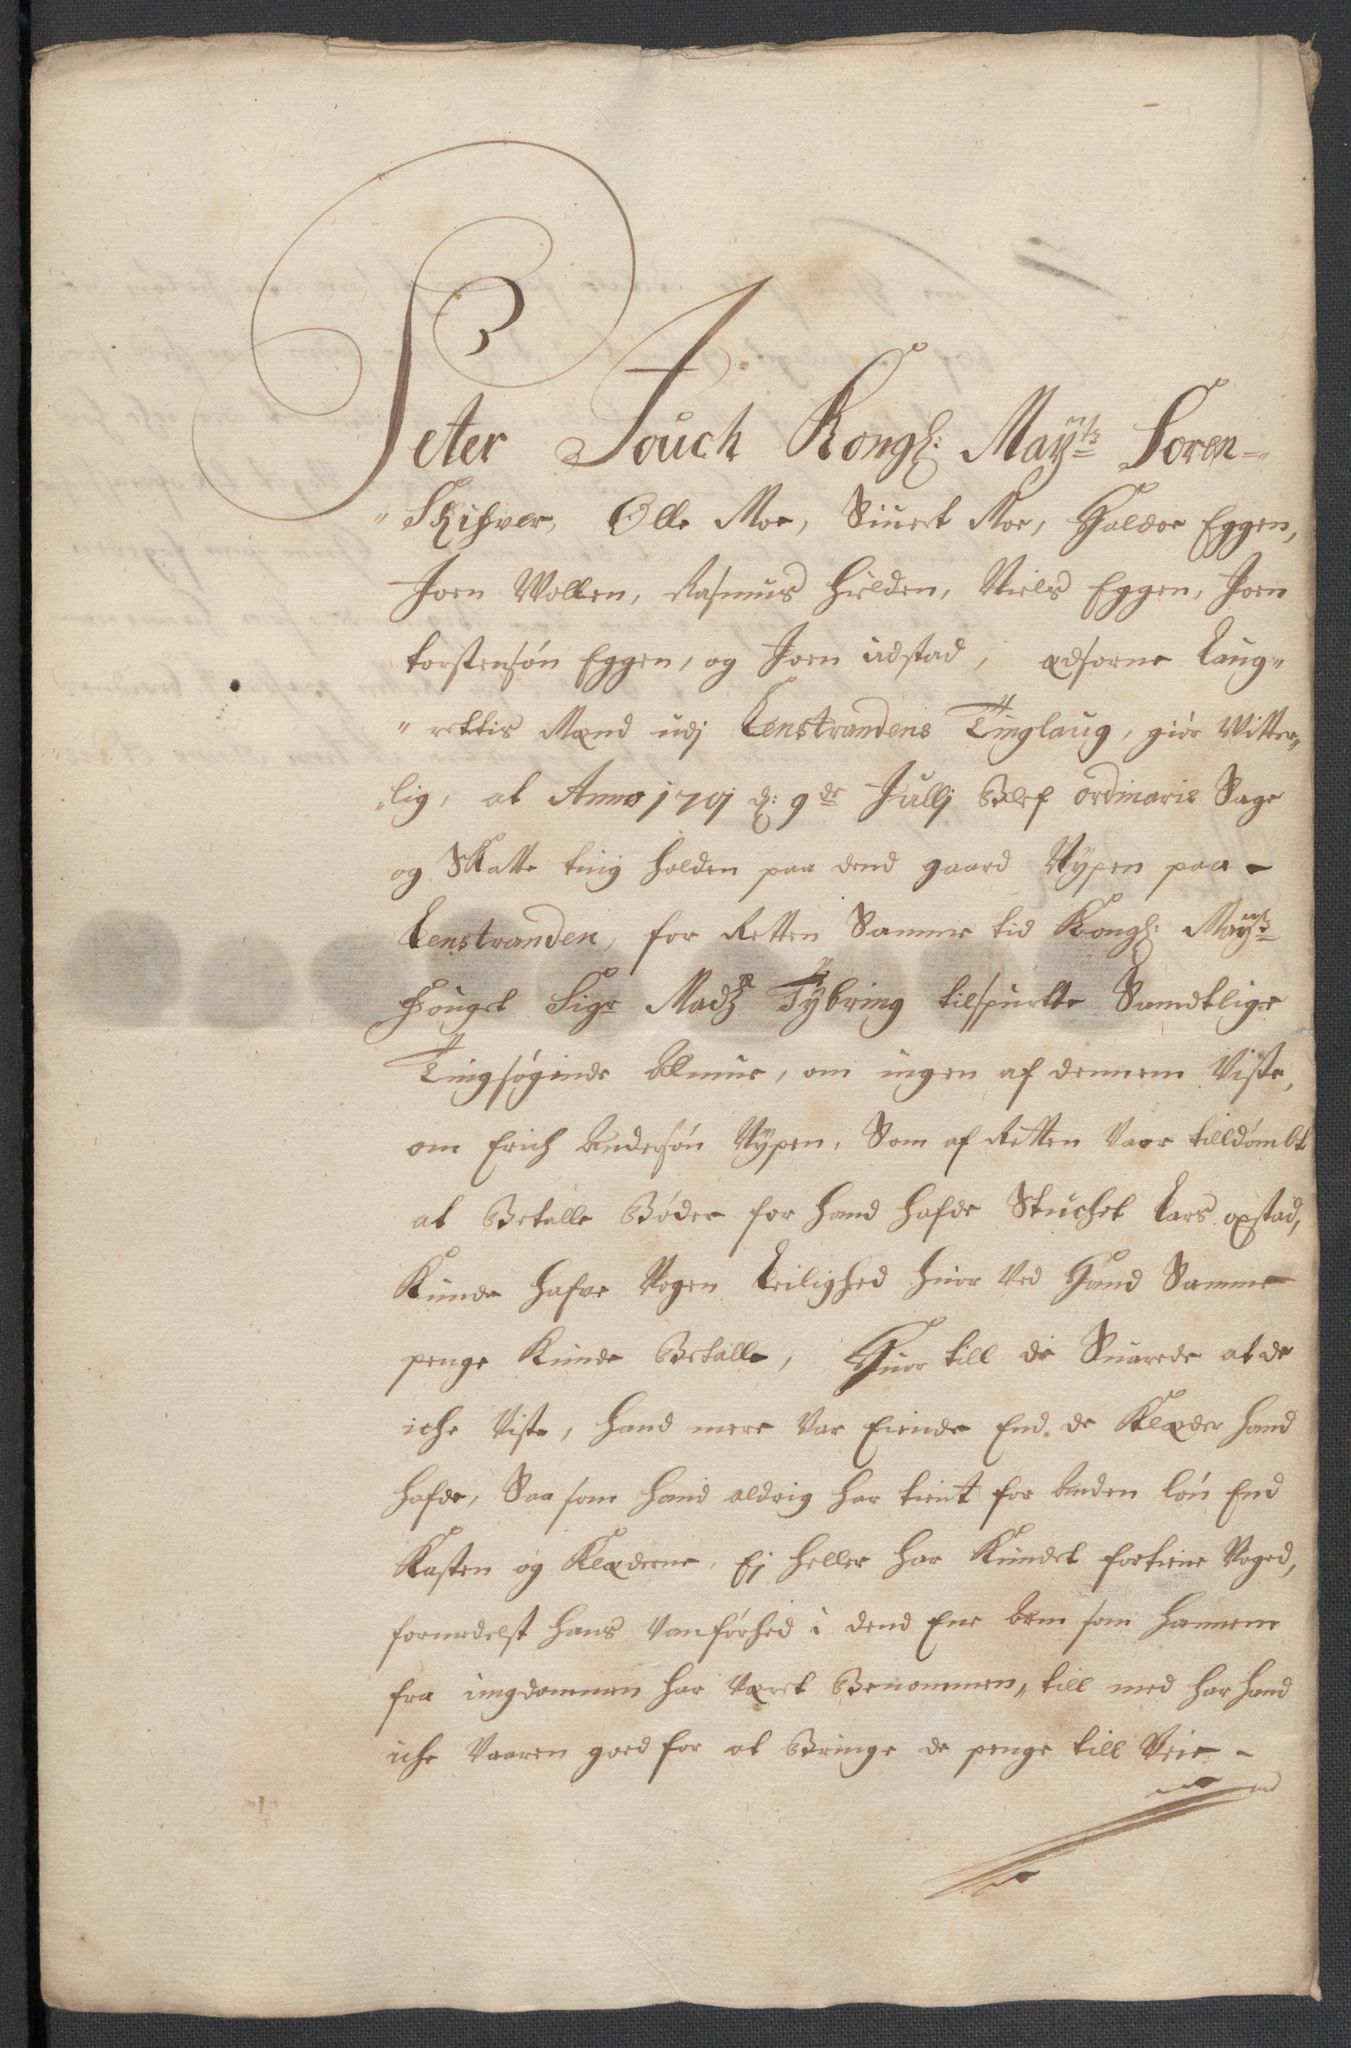 Peter Jouch Kongl: Mayts Soren-
Skrifver, Olle Moe, Siuert Moe, Haldor Eggen,
Joen Wollen, Rasmus Hielden, Niels Eggen, Joen
torstensøn Eggen, og Joen udstad, Edsorne Laug-
rettis Mænd udj Lenstrandens Tinglaug, giør Witter-
lig, at Anno 1701 d: 9de Jullij blef ordinarie Sage
og Skatte ting holden paa dend gaard Nypen paa
Lenstranden, for Retten Samme tid Kongl: Mayts
Fouget Sigr Madz Tybring tilspurte Samdtlige
Tingsøgende Almue, om ingen af dennem Viste,
om Erich Andersøn Nypen, Som af Retten Vaar tilldømbt
at Betalle Bøder for hand hafde Stuchet Lars opstad,
Kunde hafve Nogen Leilighed huor ved Hand Samme
penge Kunde Betalle, Huor till de Suarede at de
iche Viste, hand mere Var Eiende End de Klæder hand
hafde, Saa som hand aldrig har tient for Anden løn End
Kosten og Klæderne, Ej heller har Kundet fortiene Noged,
formedelst hans Vanførhed i dend Ene Arm som hannem
fra ungdommen har Været Benommen, till med har hand
iche Vaaren goed for at Bringe de penge till Veie